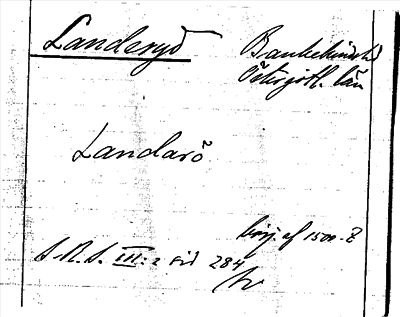 Landeryd
Bankekinds hd
Östergötl. län
Landarö
börj. af 1500-t
S. R. S. III: 2 sid 284